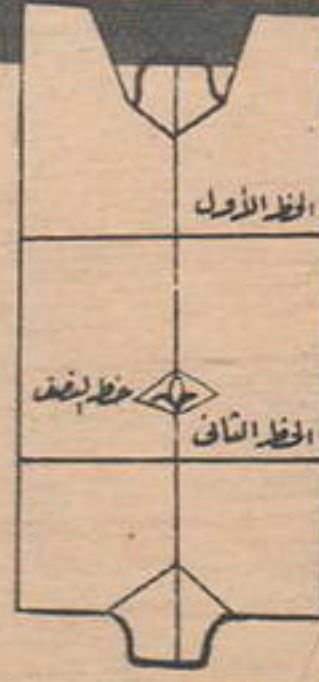 الخط الأول
خط النصف
الخط الثانى